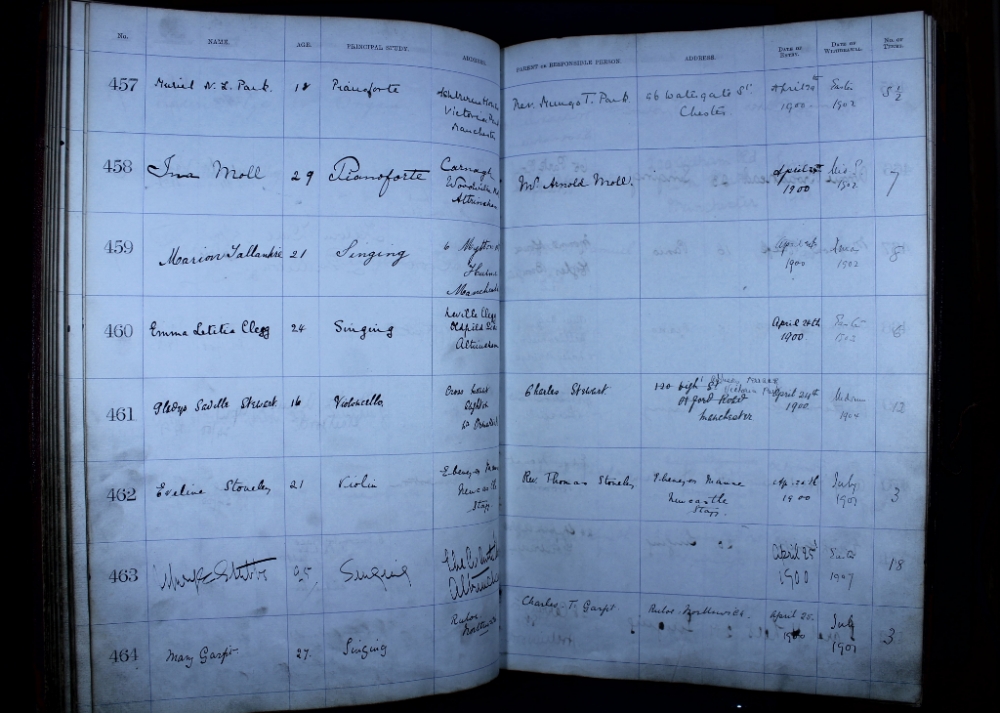 No. NAME. AGE. PRINCIPAL STUDY. ADDRESS. PARENT OR RESPONSIBLE PERSON. ADDRESS. DATE OF ENTRY. DATE OF WITHDRAWAL. No. OF TERMS.
457 Muriel N. L. Park 18 Pianoforte Victoria Manchester Rev. Mungo T. Park 66 Watergate St. Chester April 1900 Easter 1902 5½
458 Ina Moll 29 Pianoforte Altrincham Mr. Arnold Moll. April 1900 1902 7
459 Marion Tallantire 21 Singing 6 Manchester April 1900 1902 8
460 Emma Letitia Clegg 24 Singing Neville Clegg Oldfield Altrincham April 24th 1900 6
461 Gladys Saville Stewart 16 Violoncello Charles Stewart 120 High St Oxford Road Manchester Victoria April 24th 1900 1904 12
462 Eveline Stoneley 21 Violin Ebenezer Newcastle Staffs. Rev. Thomas Stoneley Ebenezer Manse Newcastle Staffs. Ap. 24th 1900 July 1901 3
463 25 Singing Altrincham April 25 1900 1907 18
464 Mary Garfit 27 Singing Northwich Charles T. Garfit Northwich April 25. 1900 July 1901 3